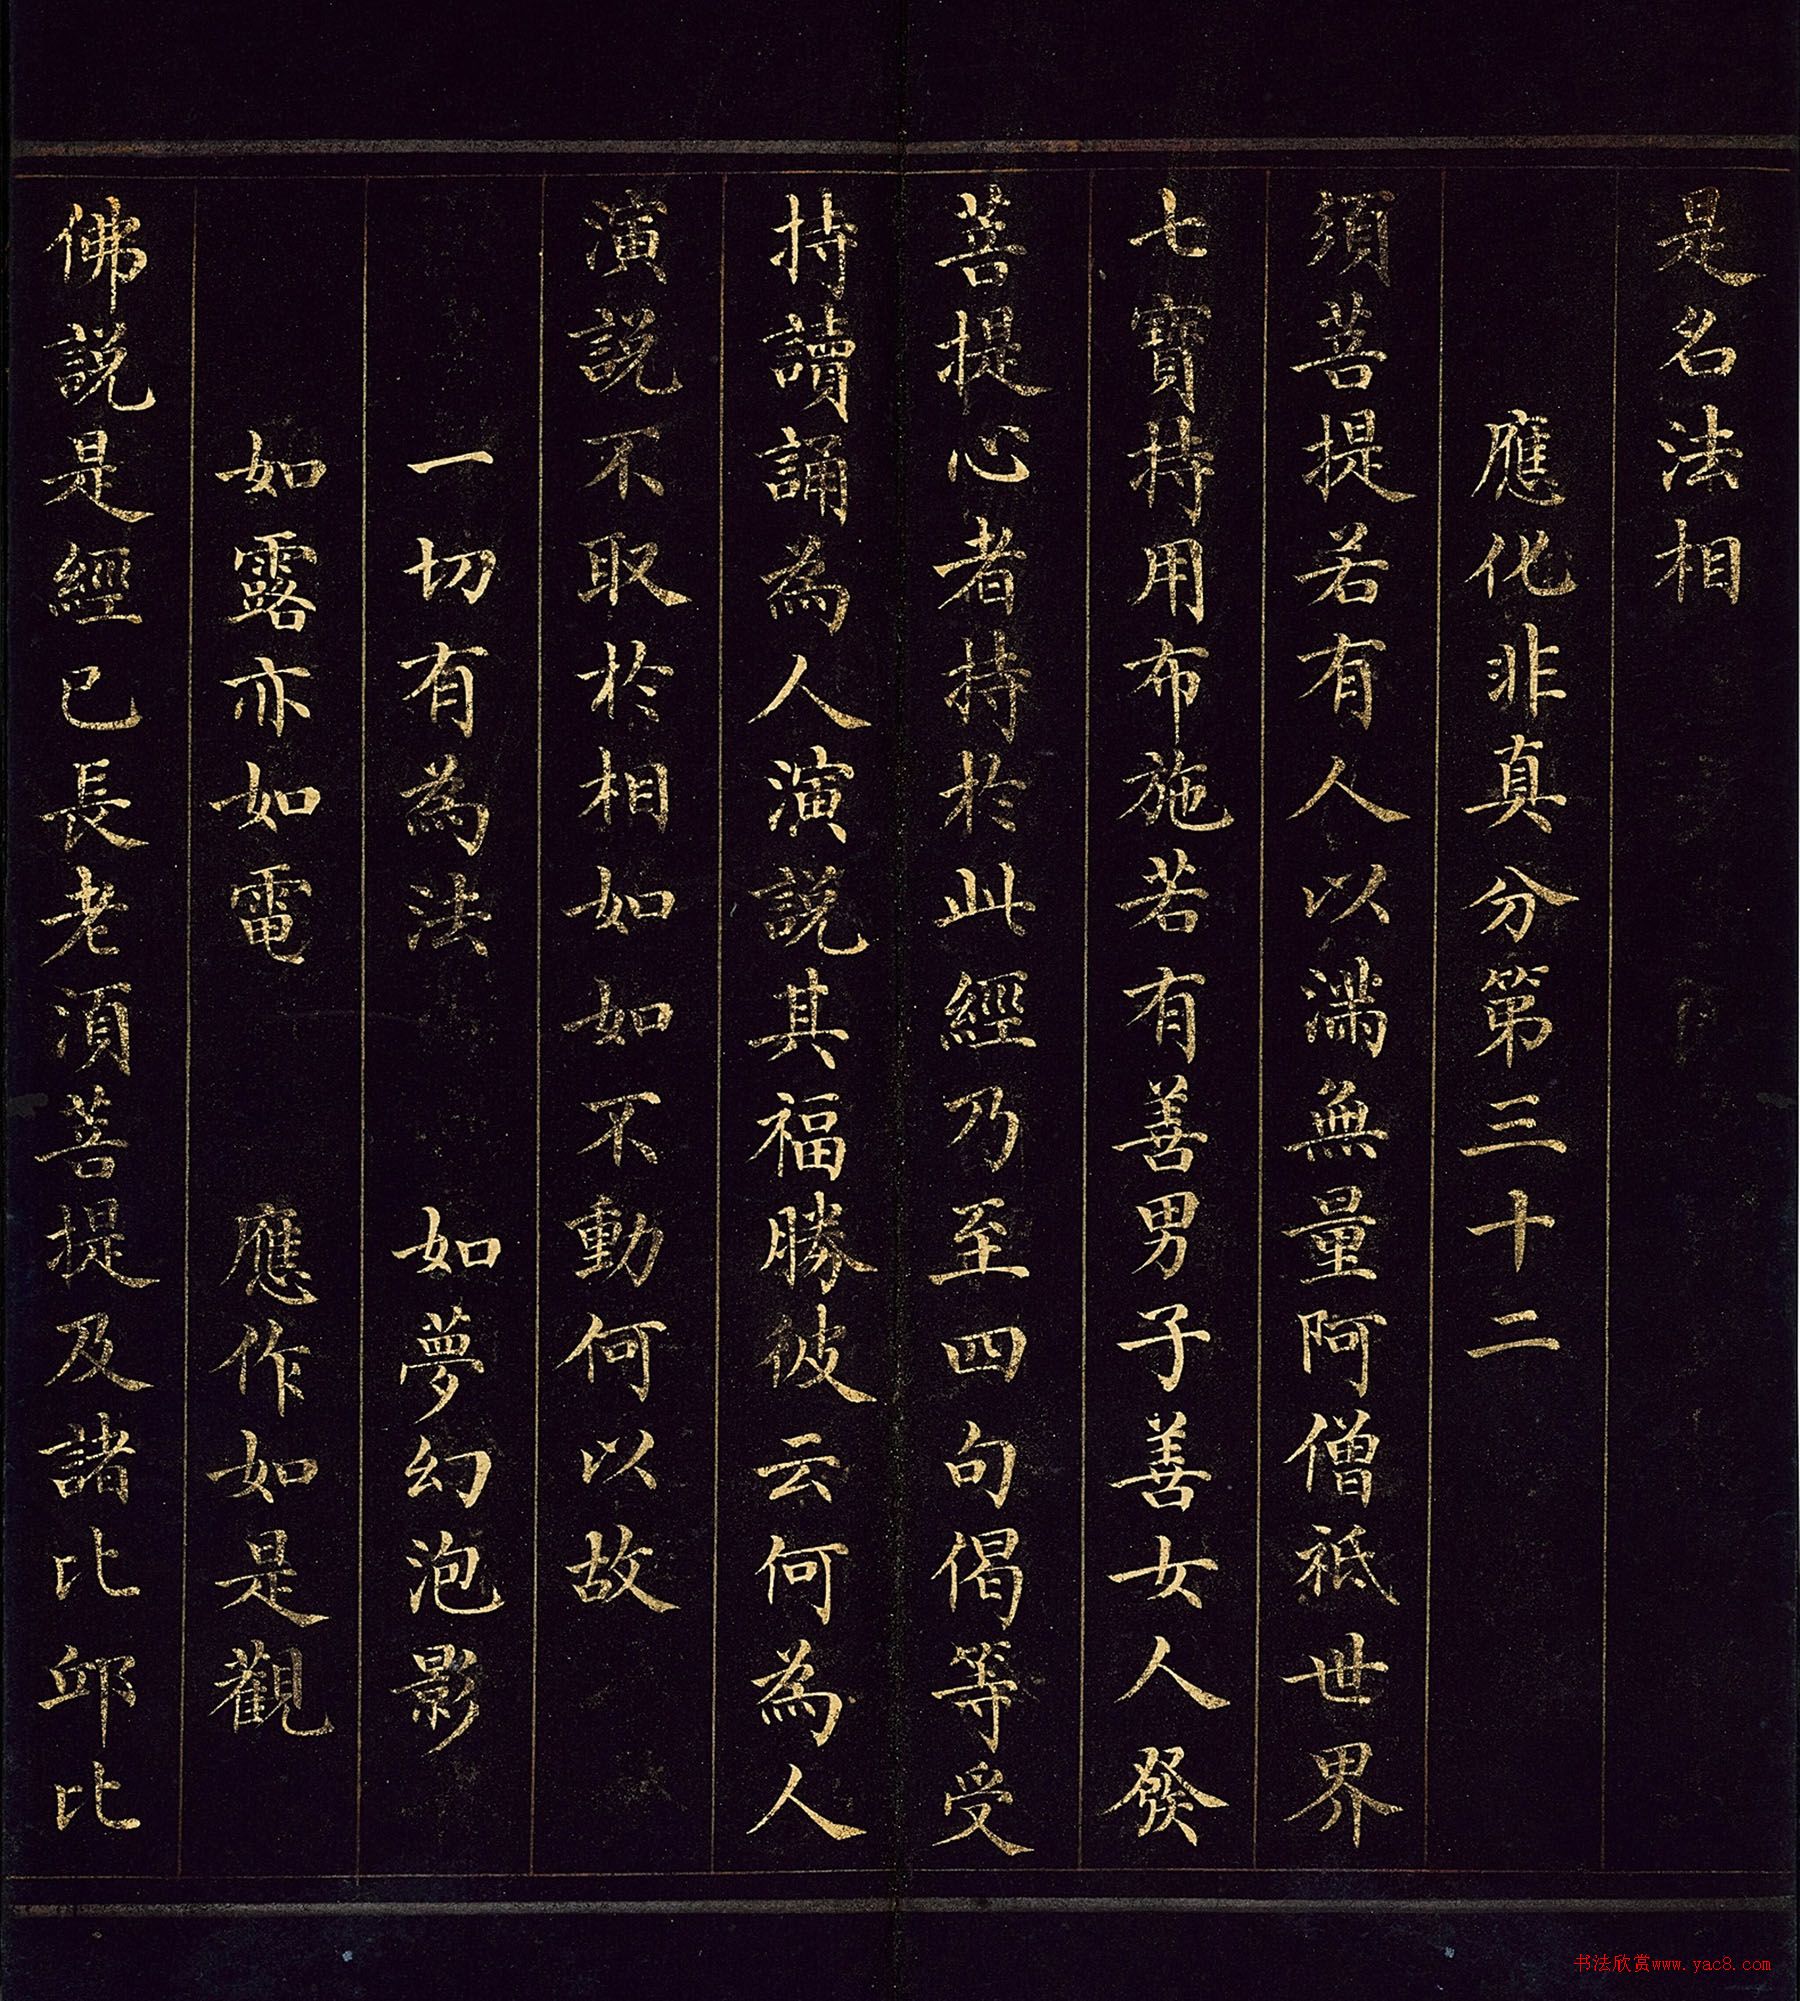 是名法相
應化非真分第三十二
須菩提若有人以滿無量阿僧祇世界
七寶持用布施若有善男子善女人發
菩提心者持於此經乃至四句偈等受
持讀誦為人演說其福勝彼云何為人
演說不取於相如如不動何以故
一切有為法 如夢幻泡影
如露亦如電 應作如是觀
佛說是經已長老須菩提及諸比邱比
书法欣赏www.yac8.com